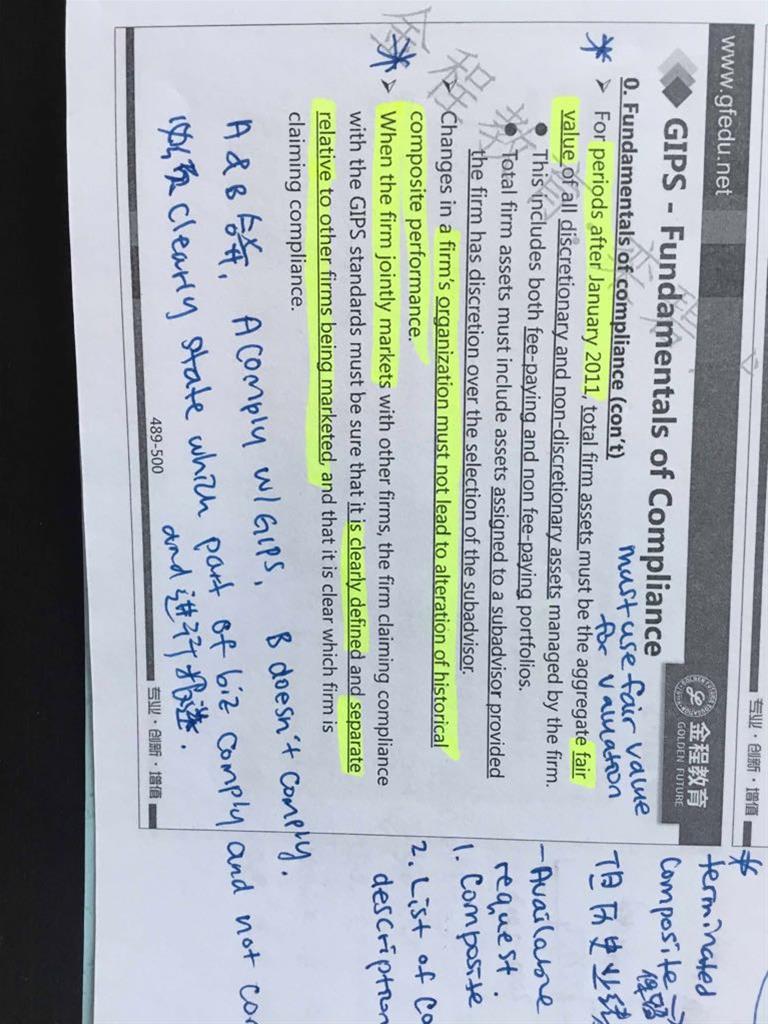 www.gfedu.net
专业·创新·增值
GIPS - Fundamentals of Compliance
金程教育
GOLDEN FUTURE
must use fair value
for valuation
0. Fundamentals of compliance (con't)
* ➢ For periods after January 2011, total firm assets must be the aggregate fair
value of all discretionary and non-discretionary assets managed by the firm.
● This includes both fee-paying and non fee-paying portfolios.
● Total firm assets must include assets assigned to a subadvisor provided
the firm has discretion over the selection of the subadvisor.
➢ Changes in a firm's organization must not lead to alteration of historical
composite performance.
* ➢ When the firm jointly markets with other firms, the firm claiming compliance
with the GIPS standards must be sure that it is clearly defined and separate
relative to other firms being marketed, and that it is clear which firm is
claiming compliance.
A & B 合并, A comply w/ GIPS, B doesn't comply.
clearly state which part of biz comply and not
and 进行
489-500
专业·创新·增值
*
terminated
composite
但历史业绩
- Available
request.
1. Composite
2. List of
description
金程教育